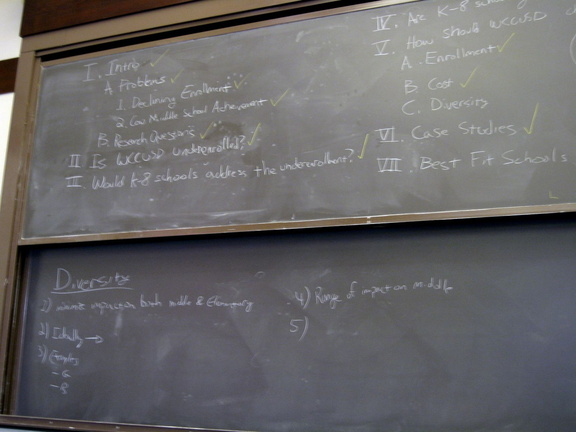 I. Intro
A. Problems
1. Declining Enrollment
2. Low Middle School Achievement
B. Research Questions
II Is WCCUSD underenrolled?
II. Would K-8 schools address the underenrollment?
IV. Are K-8 schools
V. How should WCCUSD
A. Enrollment
B. Cost
C. Diversity
VI. Case Studies
VII. Best Fit Schools
Diversity
1) impact on both middle & Elementary
2) Ideally →
3) Examples
- 6
- 8
4) Range of impact on middle
5)